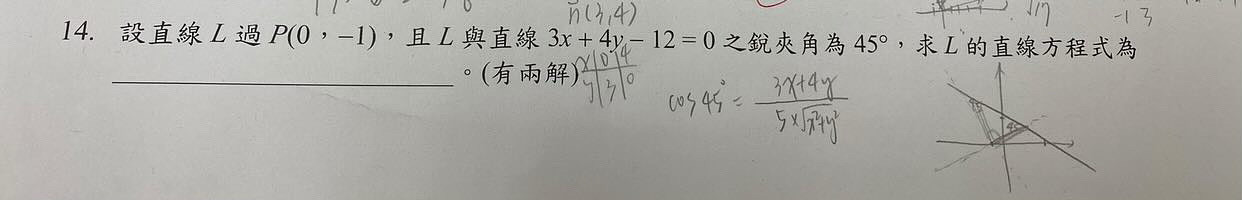 n(3,4)
-13
14. 設直線 L 過 P(0,-1),且 L 與直線 3x + 4y - 12 = 0 之銳夾角為 45°,求 L 的直線方程式為
________________。(有兩解)
x 0 4
y 3 0
cos45° = 3x+4y
5×√x²+y²
45
45